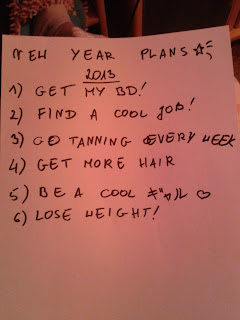 NEW YEAR PLANS ☆
2013
1) GET MY BD!
2) FIND A COOL JOB!
3) GO TANNING EVERY WEEK
4) GET MORE HAIR
5) BE A COOL ギャル ♡
6) LOSE WEIGHT!